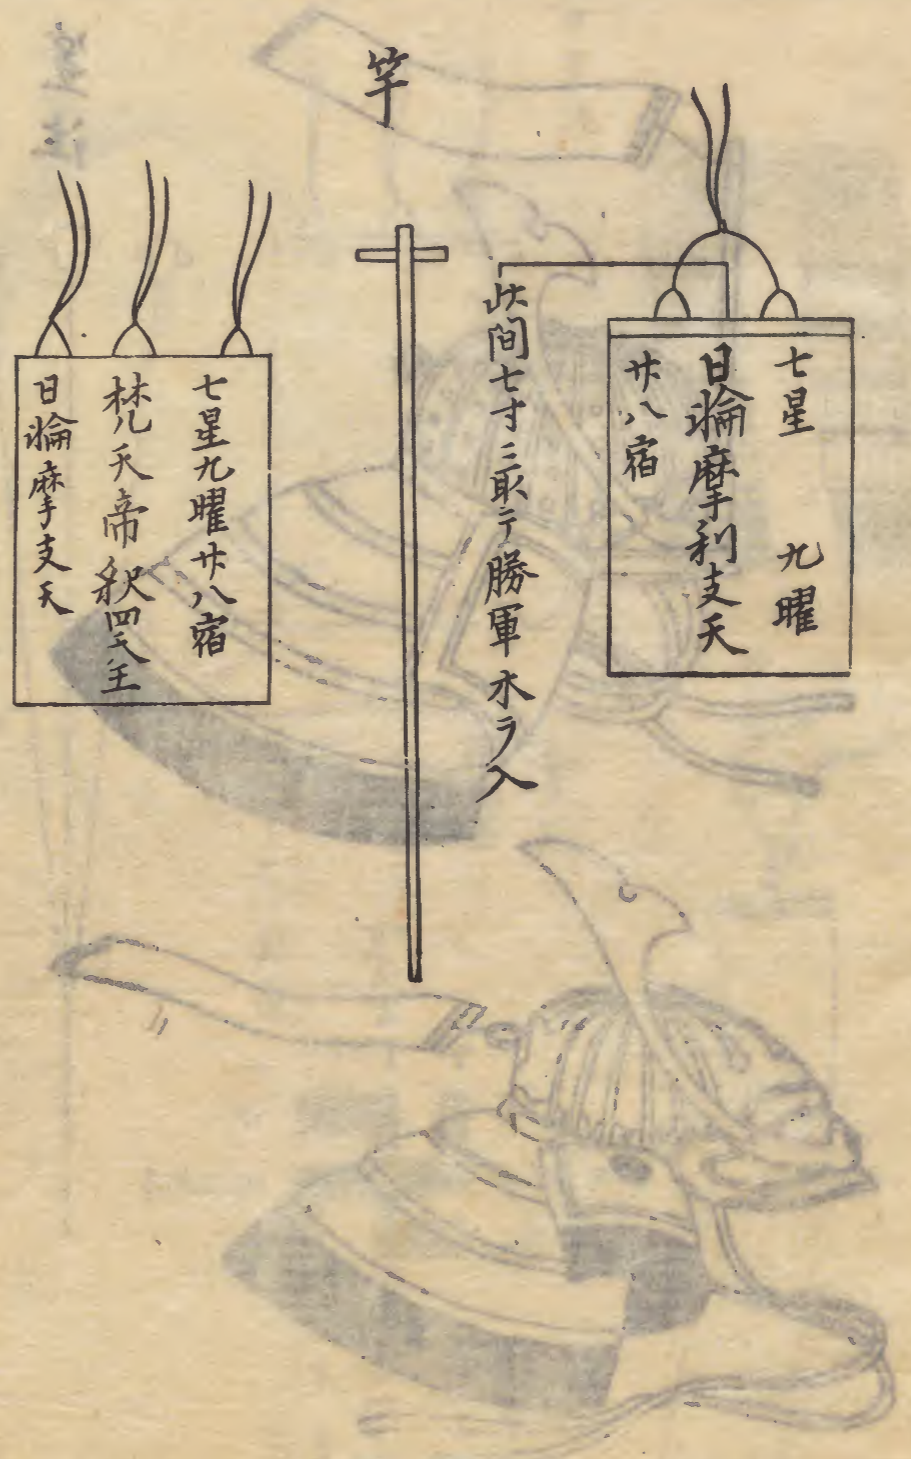 七星　九曜
日輪摩利支天
廿八宿
此間七寸ニ取テ勝軍木ヲ入
竿
七星九曜廿八宿
梵天帝釈四天王
日輪摩利支天